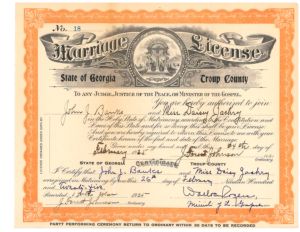 No. 18
Marriage License
State of Georgia Troup County
TO ANY JUDGE, JUSTICE OF THE PEACE, OR MINISTER OF THE GOSPEL.
You are hereby authorized to join
John J. Banks Miss Daisy
in the Holy State of Matrimony according to the Constitution and
Laws of this State, and for so doing this shall be your License.
And you are hereby required to return this License to me with your
Certificate hereon of the fact and date of the Marriage.
Given under my hand and seal this 24th day of
February 1925
Johnson
STATE OF GEORGIA CERTIFICATE TROUP COUNTY
I Certify that John J. Banks and Miss Daisy
were joined in Matrimony by me this 26th day of February Nineteen Hundred
and twenty five
1925
PARTY PERFORMING CEREMONY RETURN TO ORDINARY WITHIN 30 DAYS TO BE RECORDED